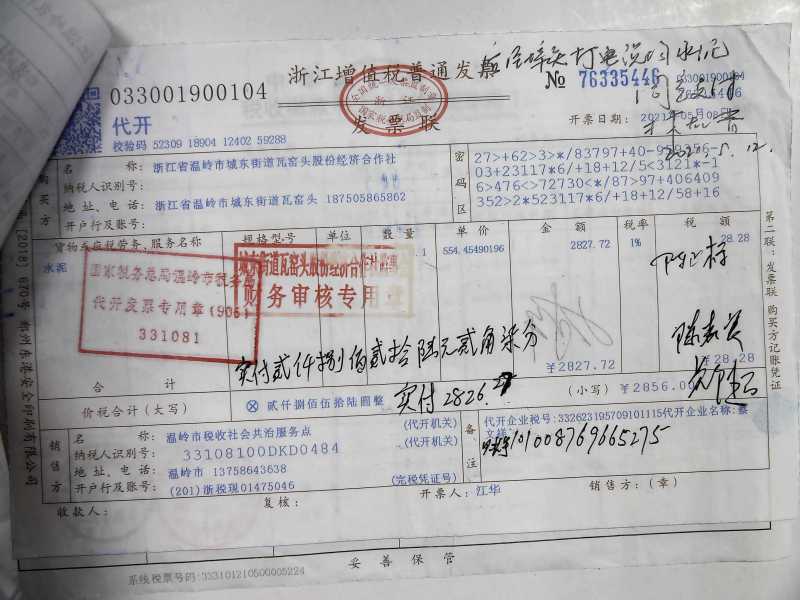 浙江增值税普通发票
033001900104
№ 76335446
033001900104
76335446
代开
发票联
开票日期:2021年05月08日
校验码 52309 18904 12402 59288
购买方
名称:浙江省温岭市城东街道瓦窑头股份经济合作社
纳税人识别号:
地址、电话:浙江省温岭市城东街道瓦窑头 187505865862
开户行及账号:
密码区
03+23117*6/+18+12/5<3121*-1
6+476<>72730<*/87>97+406409
352>2*523117*6/+18+12/58+16
货物或应税劳务、服务名称 规格型号 单位 数量 单价 金额 税率 税额
水泥 5.1 554.45490196 2827.72 1% 28.28
城东街道瓦窑头股份经济合作社
财务审核专用章
国家税务总局温岭市税务局
代开发票专用章(906)
331081
实付贰仟捌佰贰拾陆元贰角柒分
合计 ¥2827.72 ¥28.28
实付 2826.27
价税合计(大写) ⊗ 贰仟捌佰伍拾陆圆整 (小写) ¥2856.00
销售方
名称:温岭市税收社会共治服务点 (代开机关)
纳税人识别号:33108100DKD0484 (代开机关)
地址、电话:温岭市 13758643638
开户行及账号:(201)浙税现01475046 (完税凭证号)
备注
代开企业税号:332623195709101115代开企业名称:蔡
101008769665275
收款人: 复核: 开票人:江华 销售方:(章)
第二联:发票联 购买方记账凭证
[2018]670号 郑州东港安全印刷有限公司
妥善保管
系统税票号码:333101210500005224